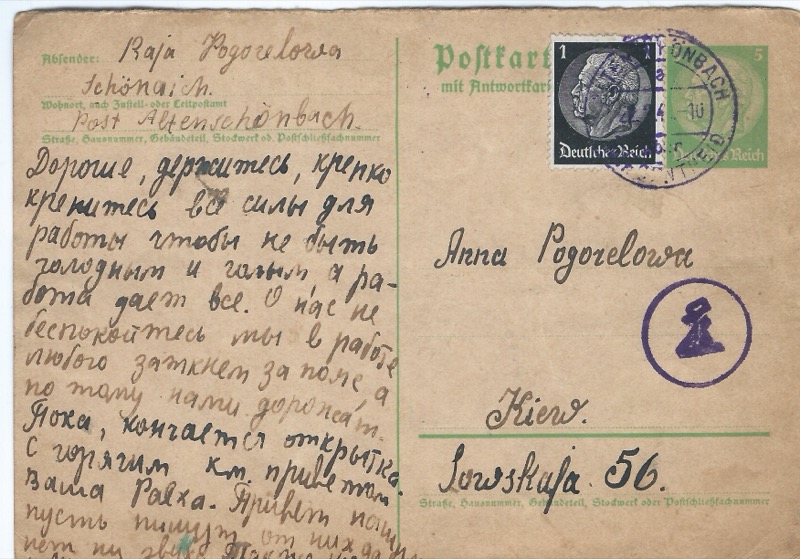 Absender: Raja Pogorelowa
Schönaich.
Wohnort, auch Zustell- oder Leitpostamt
Post Altenschönbach.
Straße, Hausnummer, Gebäudeteil, Stockwerk od. Postschließfachnummer
Дорогие, держитесь, крепко
крепитесь все силы для
работы чтобы не быть
голодным и голым а ра-
бота дает все. О нас не
беспокойтесь мы в работе
любого заткнем за пояс, а
по тому нами дорожат.
Пока, кончается открытка.
С горячим к м приветом
Ваша Раяха. Привет
пусть пишут от них да
нет ни
Postkart
mit Antwortkart
1
Deutsches Reich
5
Deutsches Reich
ÖNBACH
Anna Pogorelowa
Kiew.
Lowskaja 56.
Straße, Hausnummer, Gebäudeteil, Stockwerk oder Postschließfachnummer